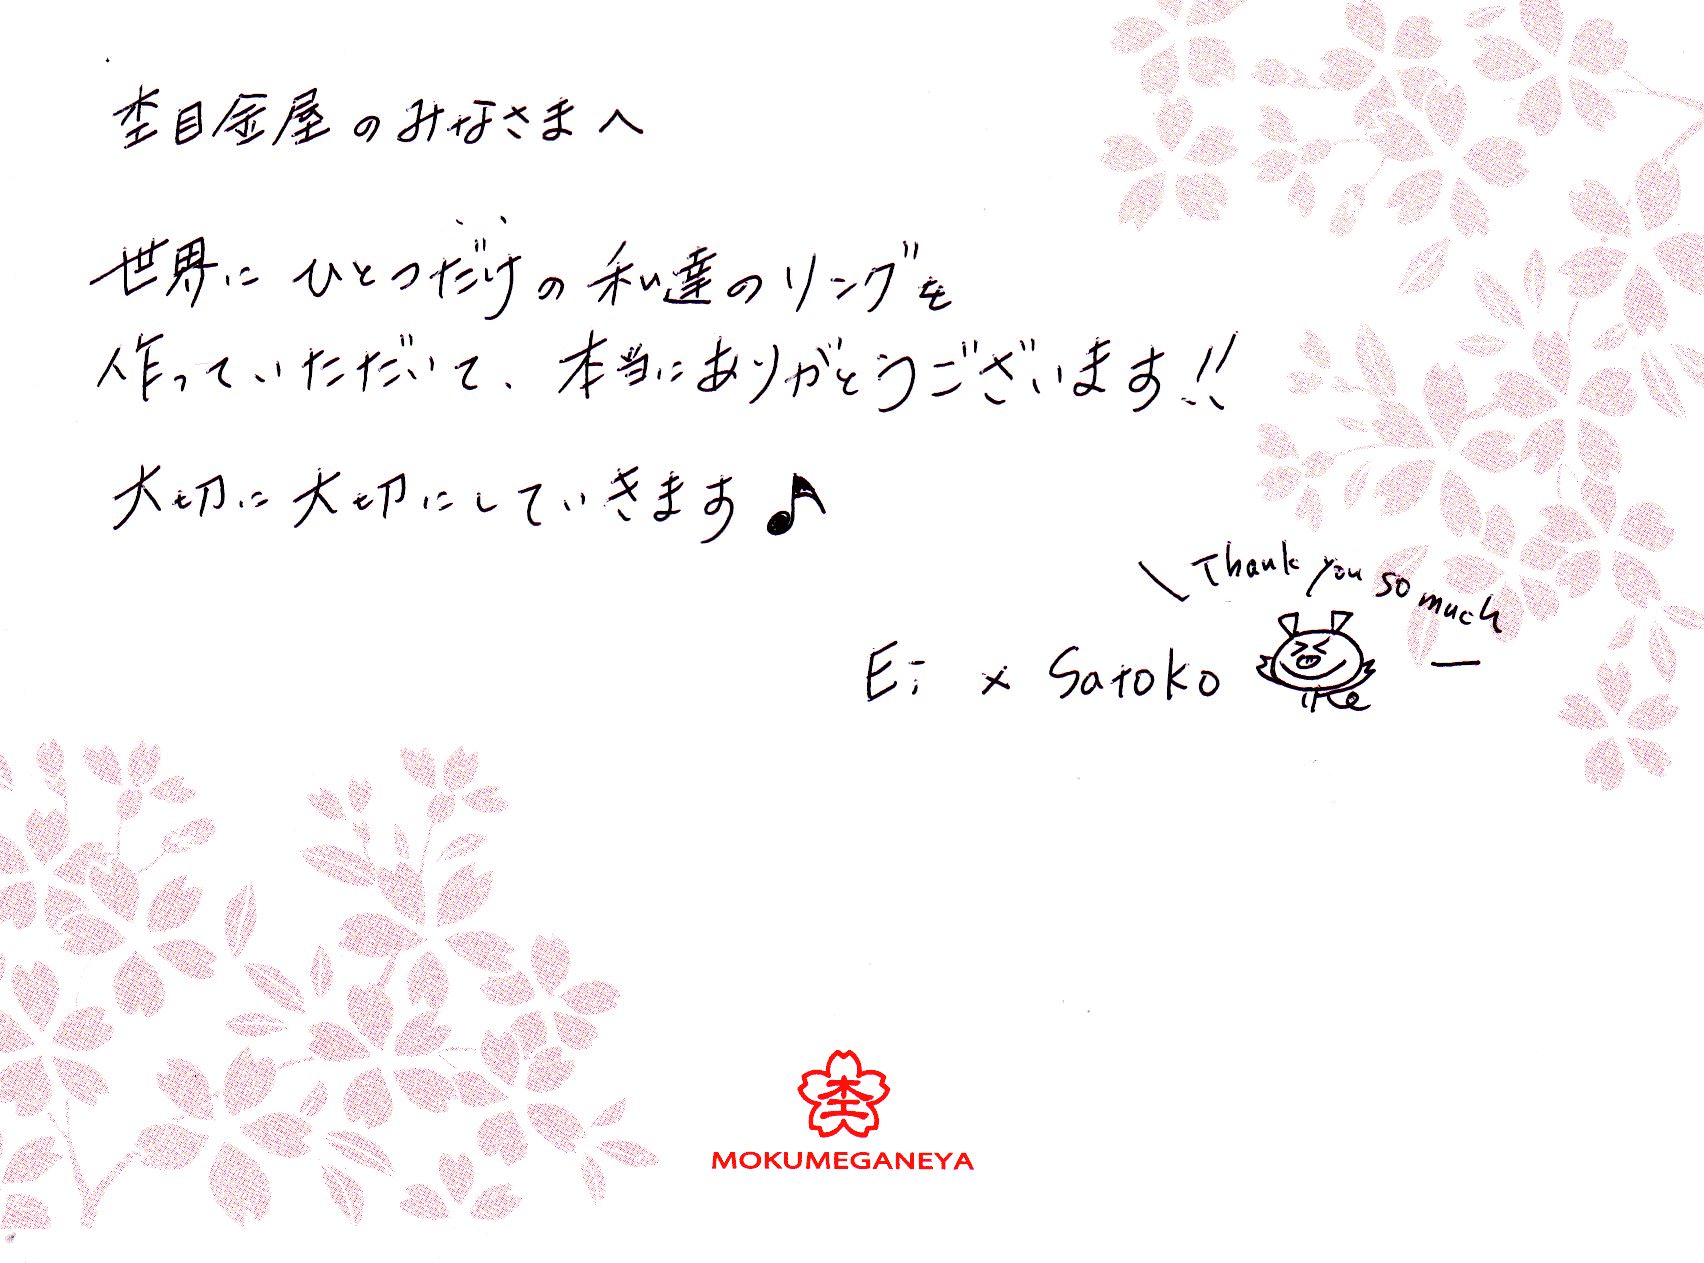 杢目金屋のみなさまへ
世界にひとつだけの私達のリングを
作っていただいて、本当にありがとうございます!!
大切に大切にしていきます♪
Thank you so much
Ei × Satoko
杢
MOKUMEGANEYA